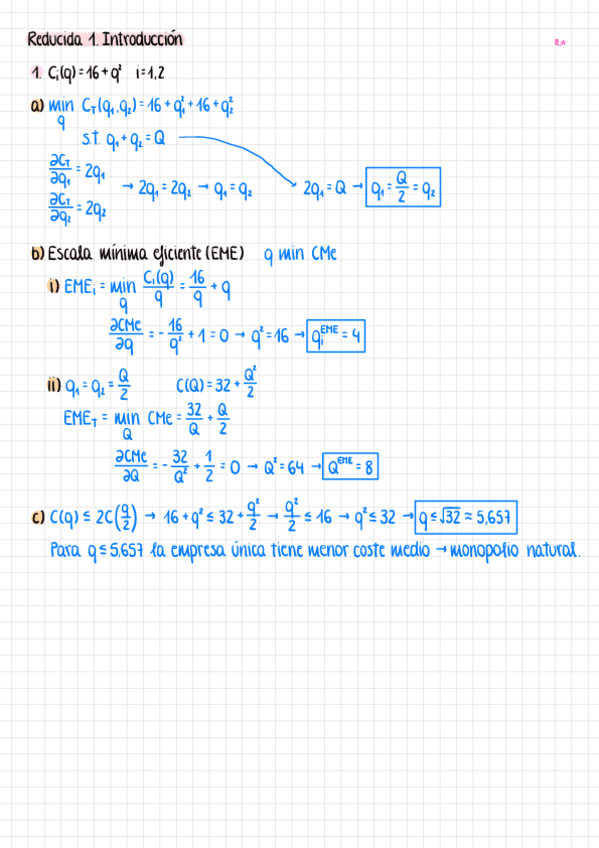 Reducida 1. Introducción
R.A
1. Cᵢ(q) = 16 + q² i = 1,2
a) min C_T(q₁, q₂) = 16 + q₁² + 16 + q₂²
q
s.t. q₁ + q₂ = Q
∂C_T/∂q₁ = 2q₁
→ 2q₁ = 2q₂ → q₁ = q₂ 2q₁ = Q → q₁ = Q/2 = q₂
∂C_T/∂q₂ = 2q₂
b) Escala mínima eficiente (EME) q min CMe
i) EMEᵢ = min Cᵢ(q)/q = 16/q + q
q
∂CMe/∂q = - 16/q² + 1 = 0 → q² = 16 → qᵢ^EME = 4
ii) q₁ = q₂ = Q/2 C(Q) = 32 + Q²/2
EME_T = min CMe = 32/Q + Q/2
Q
∂CMe/∂Q = - 32/Q² + 1/2 = 0 → Q² = 64 → Q^EME = 8
c) C(q) ≤ 2C(q/2) → 16 + q² ≤ 32 + q²/2 → q²/2 ≤ 16 → q² ≤ 32 → q ≤ √32 ≈ 5,657
Para q ≤ 5,657 la empresa única tiene menor coste medio → monopolio natural.